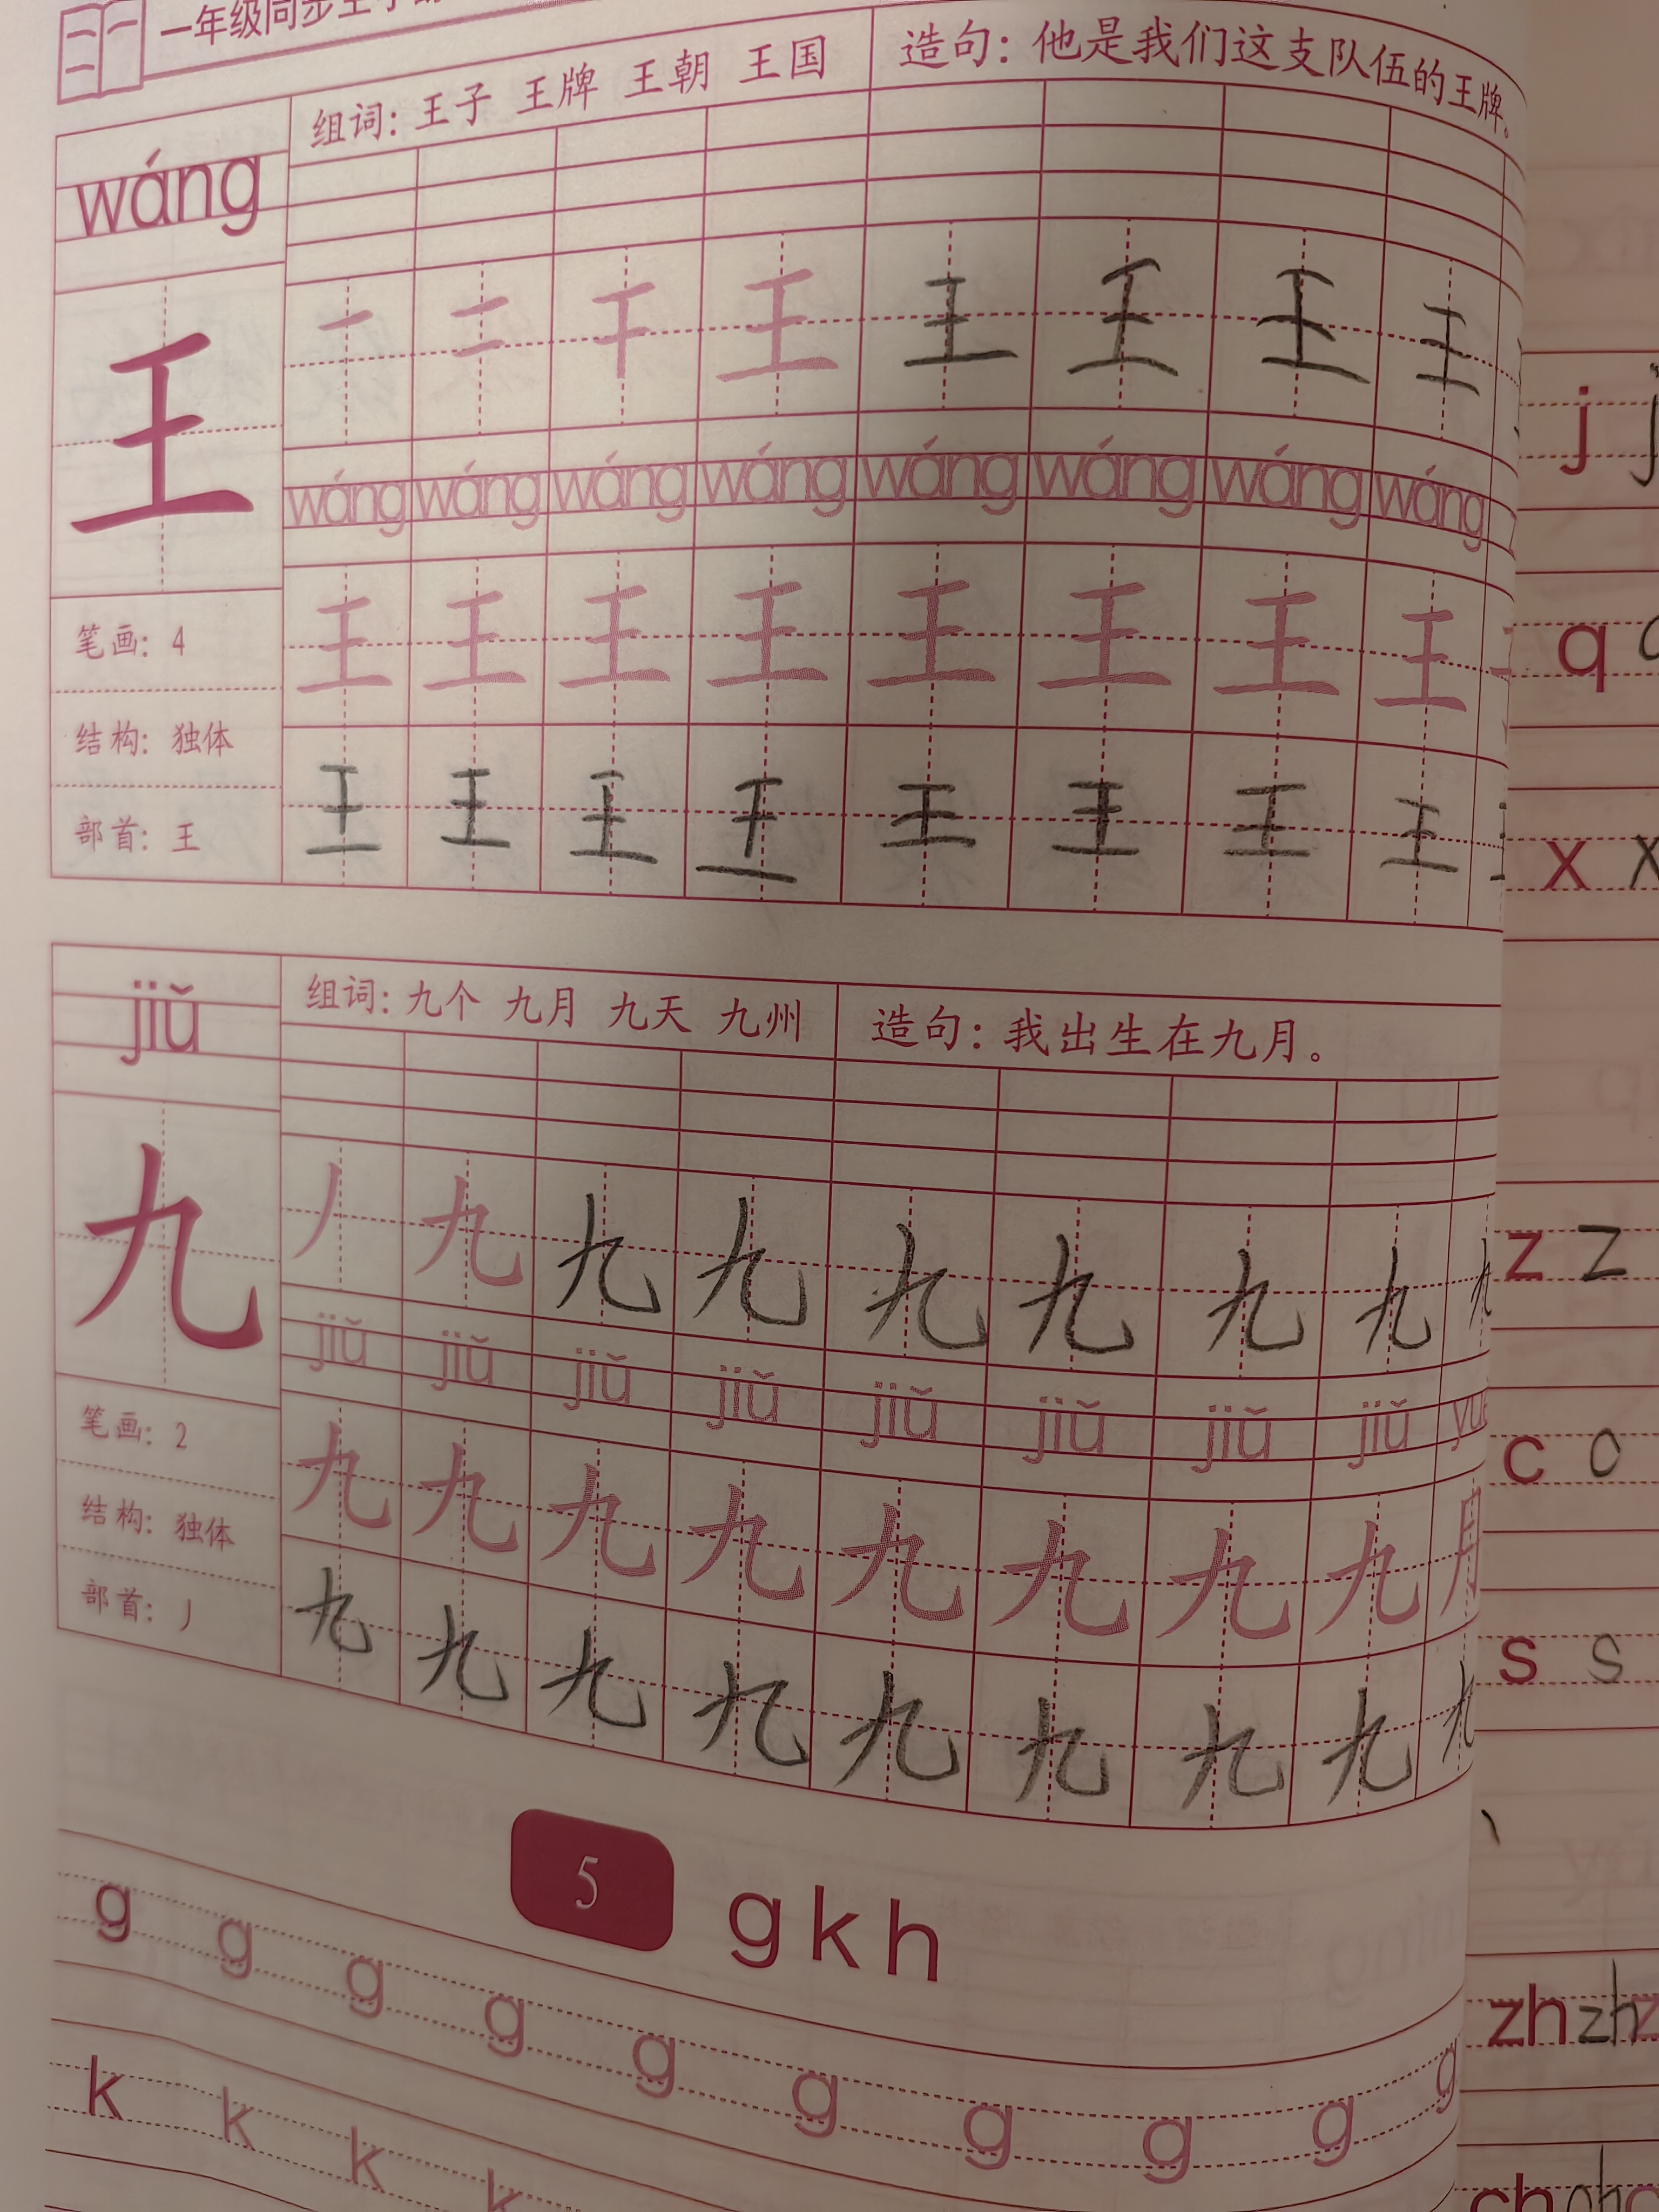 一年级同步生字
wáng
组词：王子 王牌 王朝 王国
造句：他是我们这支队伍的王牌。
王
王 王 王 王 王
wáng wáng wáng wáng wáng wáng wáng wáng
王 王 王 王 王 王 王 王
王 王 王 王 王 王 王 王
笔画：4
结构：独体
部首：王
jiǔ
组词：九个 九月 九天 九州
造句：我出生在九月。
九
丿 九 九 九 九 九 九 九 九
jiǔ jiǔ jiǔ jiǔ jiǔ jiǔ jiǔ jiǔ
九 九 九 九 九 九 九 九 月
九 九 九 九 九 九 九 九 九
笔画：2
结构：独体
部首：丿
5
g k h
g g g g g g g g g g
k k k k
j j
q
x x
z z
c c
s s
zh zh z
ch ch